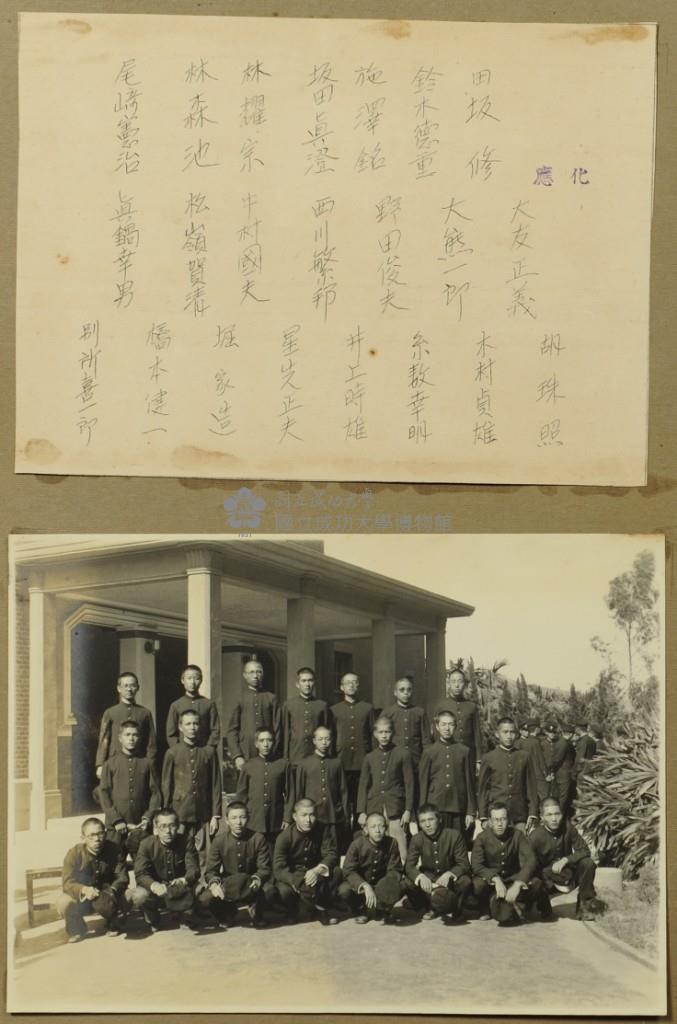 化應
田坂修
鈴木德重
施澤銘
坂田眞澄
林耀宗
林森池
尾崎憲治
大友正義
大熊一郎
野田俊夫
西川繁邦
中村國夫
松嶺賀清
眞鍋幸男
胡珠照
木村貞雄
糸数幸明
井上時雄
星出正夫
堀家造
橋本健一
別所喜一郎
國立成功大學
國立成功大學博物館
1931